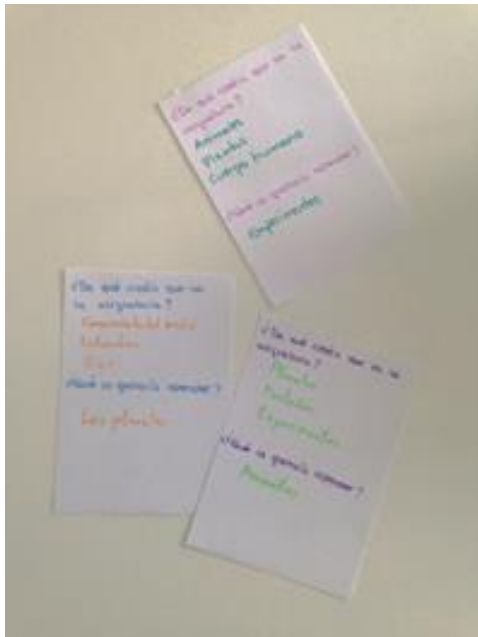 ¿De qué creéis que va la
asignatura?
Animales
Plantas
Cuerpo humano
¿Qué os gustaría aprender?
Experimentos
¿De qué creéis que va
la asignatura?
¿Qué os gustaría aprender?
Las plantas
¿De qué creéis que va la
asignatura?
Plantas
Experimentos
¿Qué os gustaría aprender?
Animales